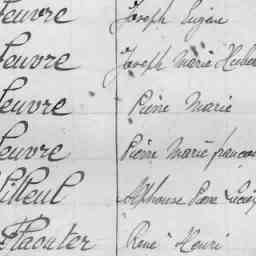 euvre Joseph Eugène
euvre Joseph Marie
euvre Pierre Marie
euvre Pierre Marie francois
illeul Alphonse Pierre
René Henri